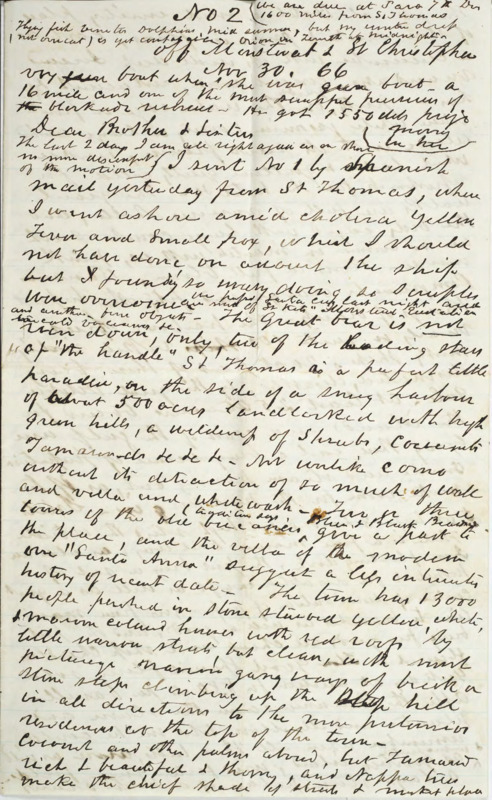 No 2
We are due at Para 7th Dec
1600 miles from St Thomas
Flying fish number Dolphins mid summer, but my winter dress
(not overcoat) is yet comfortable Orion in Zenith by midnight
off Montserrat & St Christopher
Nov 30. 66
boat when she was bout - a
16 mile and one of the most successful runners of
the blockade - He got 1550 dolls prize
money
in her
Dear Brother & Sisters
The last 2 days I am all right again as on shore
no more discomfort
of the motion
I sent No 1 by Spanish
mail yesterday from St Thomas, where
I went ashore amid cholera Yellow
Fever and Small Pox, which I should
not have done on account the ship
but I found so many doing so scruples
were overcome
last night and
and another fine object
The Great bear is not
even down, only two of the leading stars
of "the handle" St Thomas is a perfect little
paradise, on the side of a snug harbour
of about 500 acres landlocked with high
green hills, a wilderness of Shrubs, Cocoanuts
Tamarinds &c &c &c - Not unlike Como
without its detraction of so much of wall
and villa and white wash - Two or three
towers of the old buccaniers, give a past to
the place, and the villa of the modern
own "Santa Anna" suggest a less intimate
history of recent date - The town has 13000
people perched in stone stuccoed yellow, white,
& maroon colored houses with red roofs, by
little narrow streets but clean, with most
picturesque narrow gang ways of brick or
stone steps climbing up the hill
in all directions to the more pretensious
residences at the top of the town -
Cocoanut and other palms abound, but Tamarind
rich & beautiful & thorny, and Nappa trees
make the chief shade of streets & market place